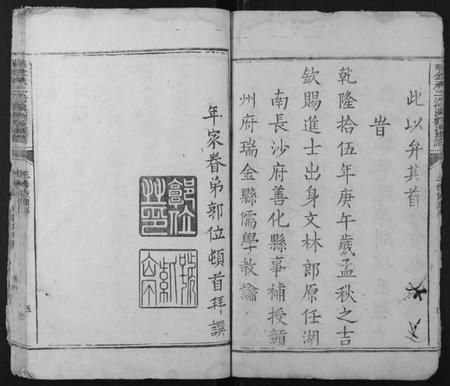 此以弁其首
旹
乾隆拾伍年庚午歲孟秋之吉
欽賜進士出身文林郎原任湖
南長沙府善化縣事補授贛
州府瑞金縣儒學教諭
年家眷弟郭位頓首拜譔
郭位之印
五